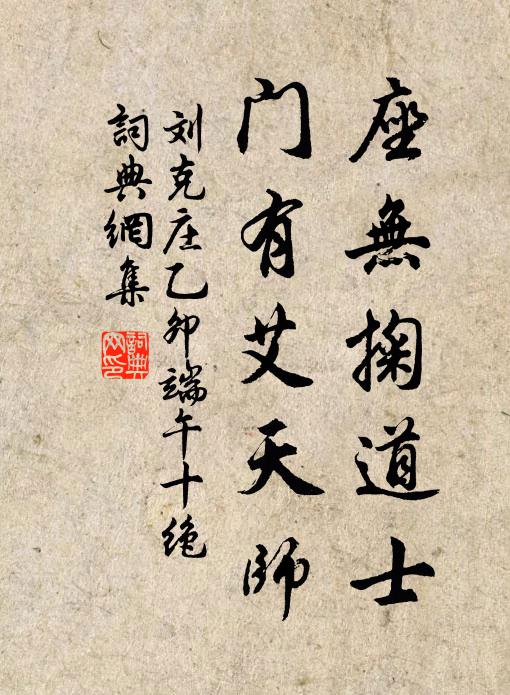 座無掬道士
门有艾天師
刘克庄乙卯端午十绝
詞典網集
詞典
网印